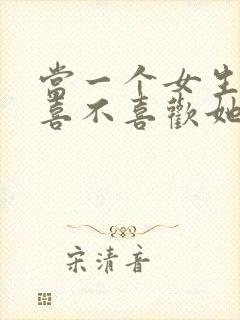 當一个女生
喜不喜歡她
宋清音